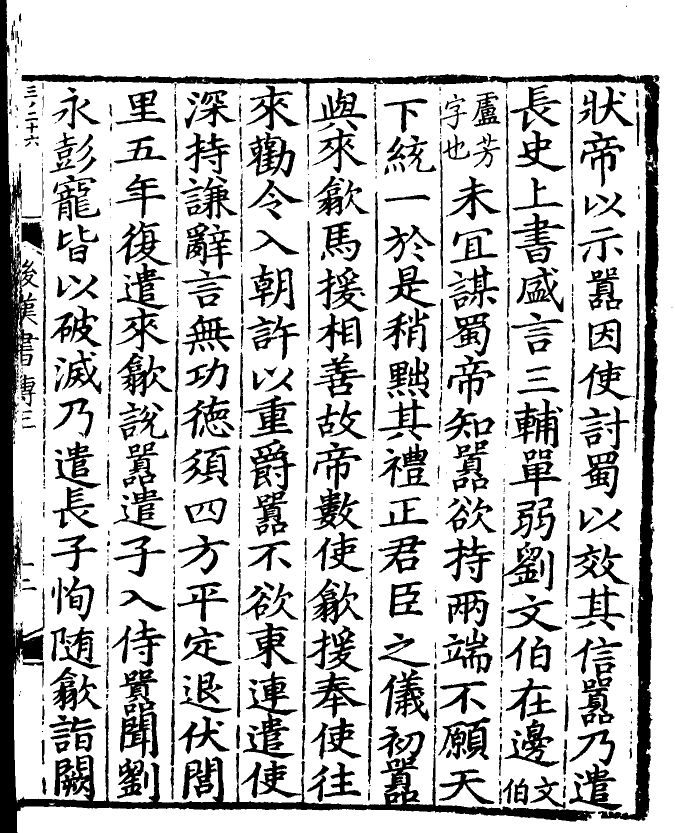 狀帝以示囂因使討蜀以效其信囂乃遣
長史上書盛言三輔單弱劉文伯在邊文伯
盧芳字也未宜謀蜀帝知囂欲持兩端不願天
下統一於是稍黜其禮正君臣之儀初囂
與來歙馬援相善故帝數使歙援奉使往
來勸令入朝許以重爵囂不欲東連遣使
深持謙辭言無功德須四方平定退伏閭
里五年復遣來歙說囂遣子入侍囂聞劉
永彭寵皆以破滅乃遣長子恂随歙詣闕
三ノ二十六
後漢書傳三